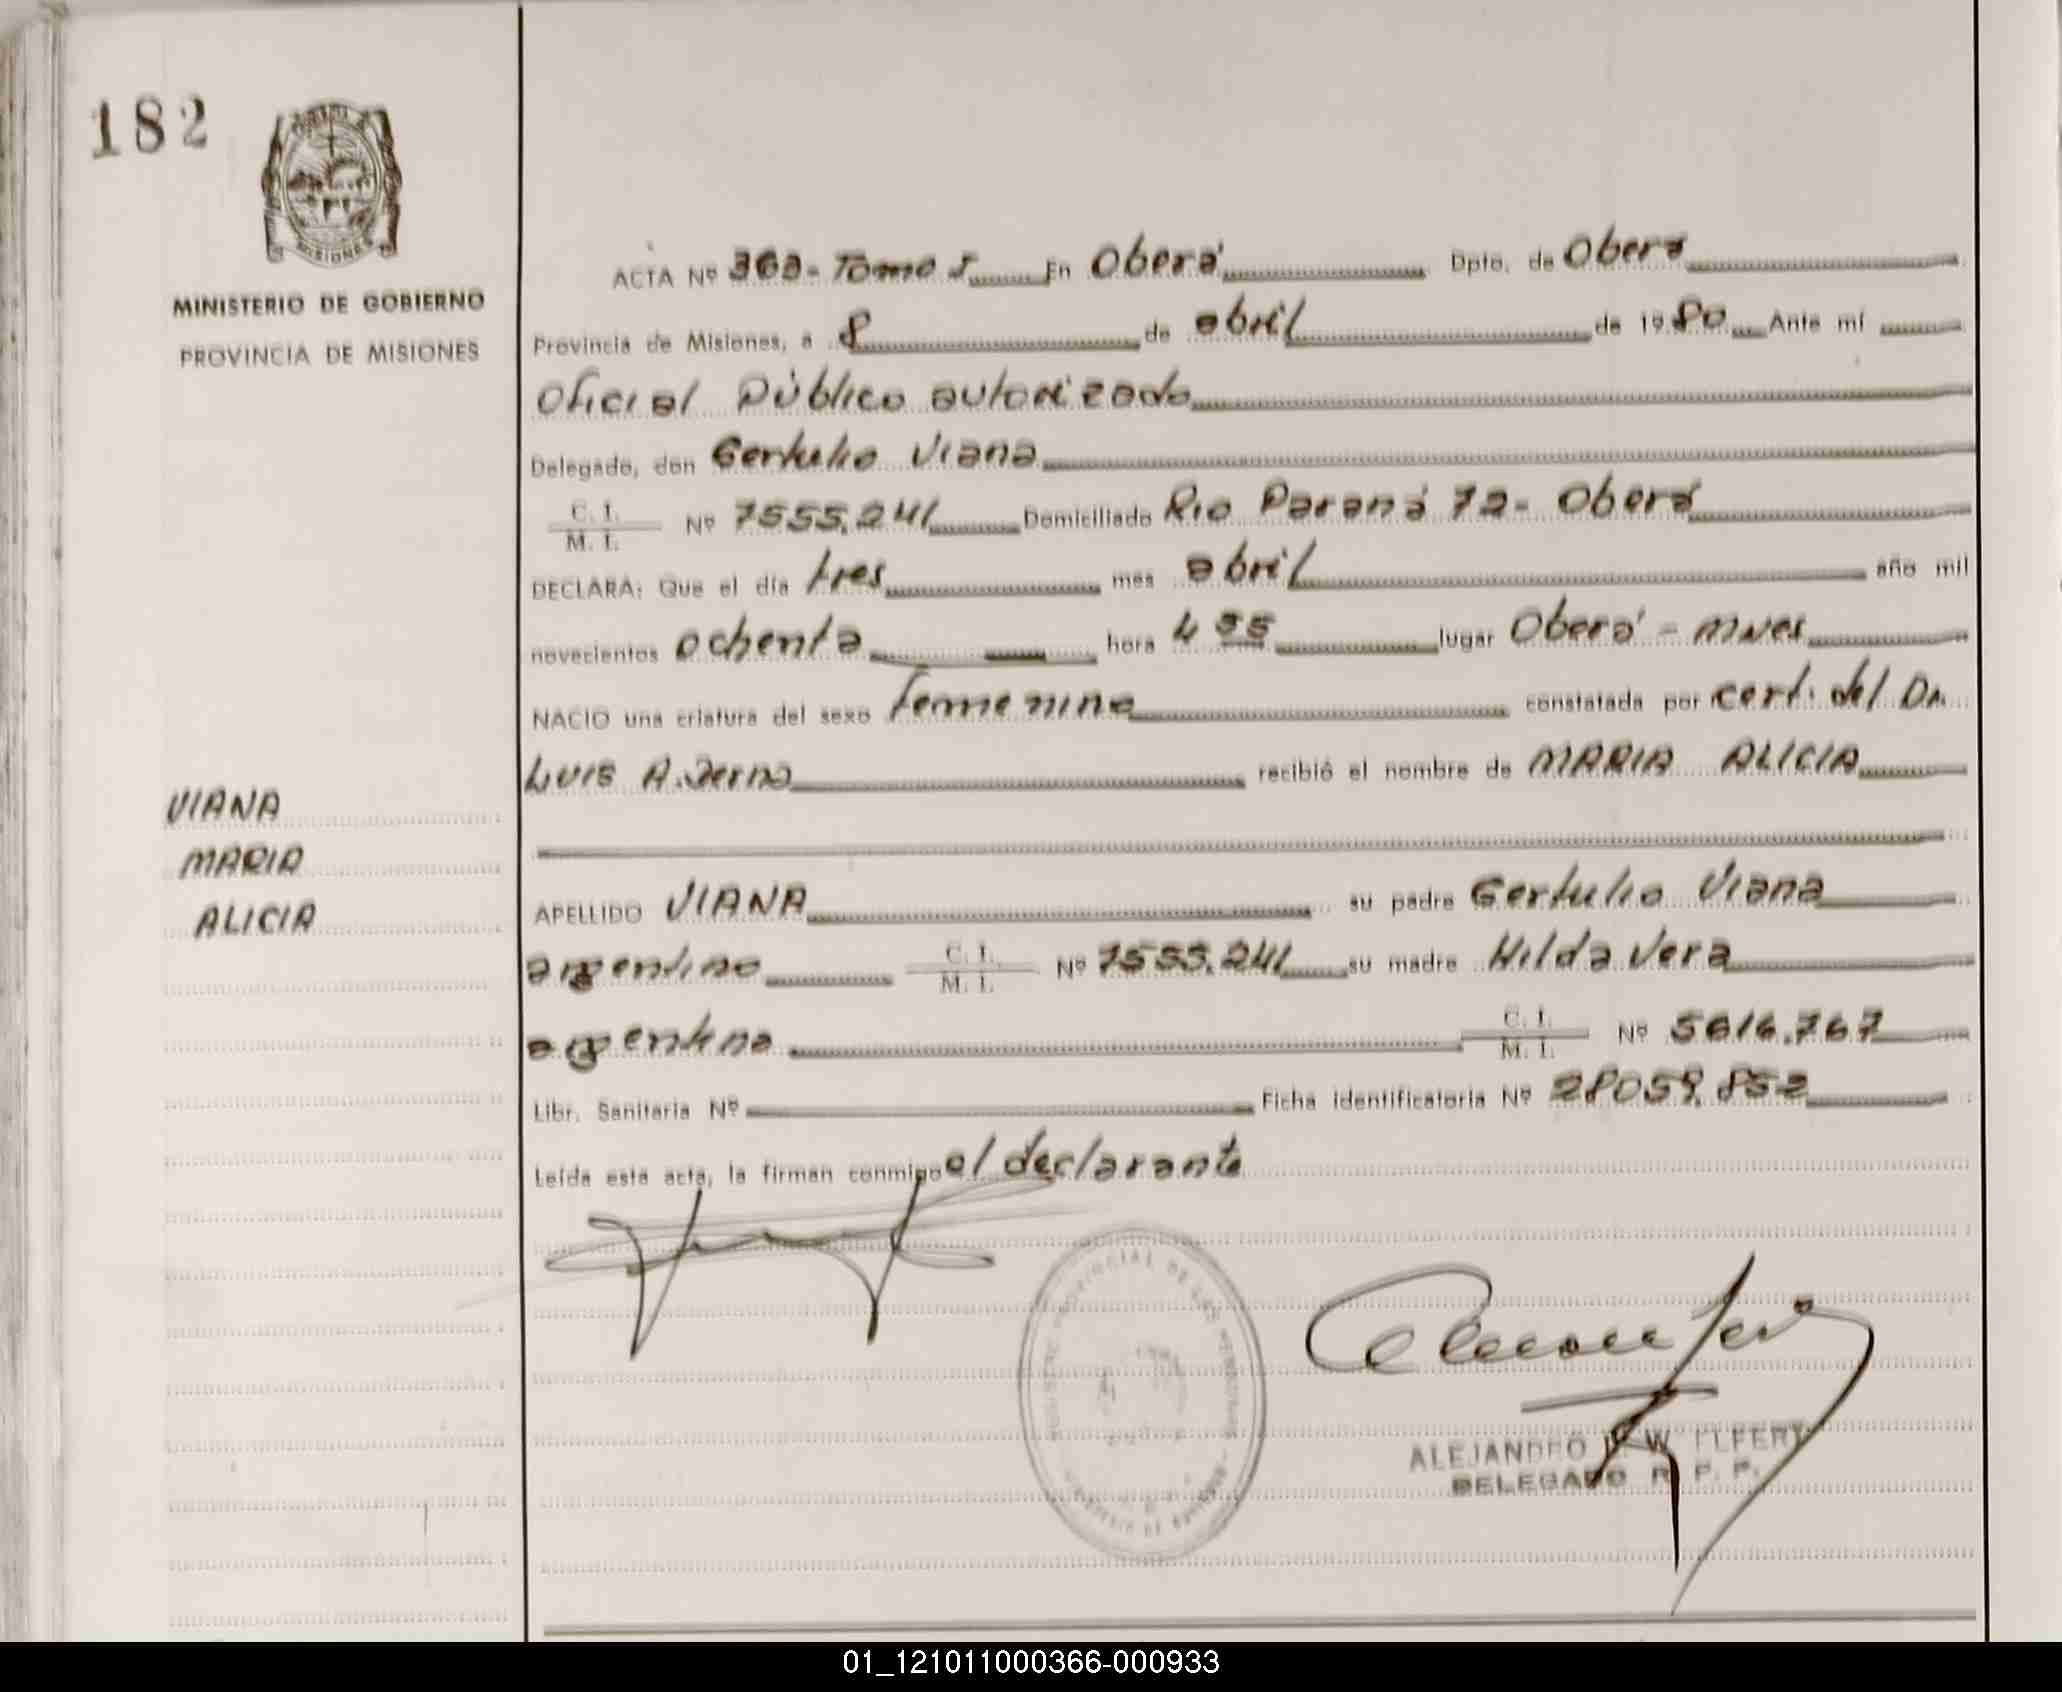 182
MISIONES
MINISTERIO DE GOBIERNO
PROVINCIA DE MISIONES
VIANA
MARIA
ALICIA
ACTA Nº 363 - Tomo I En Oberá Dpto. de Oberá
Provincia de Misiones, a 8 de abril de 1980 Ante mí
Oficial Público autorizado
Delegado, don Gertulio Viana
C. I.
M. I. Nº 7555.241 Domiciliado Rio Paraná 72 - Oberá
DECLARA: Que el día tres mes abril año mil
novecientos ochenta hora 4 55 lugar Oberá - Mnes
NACIO una criatura del sexo femenino constatada por cert. del Dr.
Luis A. Derna recibió el nombre de MARIA ALICIA
APELLIDO VIANA su padre Gertulio Viana
argentino C. I. M. I. Nº 7555.241 su madre Hilda Vera
argentina C. I. M. I. Nº 5616.767
Libr. Sanitaria Nº Ficha identificatoria Nº 28059.852
Leída esta acta, la firman conmigo el declarante
PROVINCIAL DE LAS PERSONAS
ALEJANDRO
DELEGADO R. P. P.
01_121011000366-000933